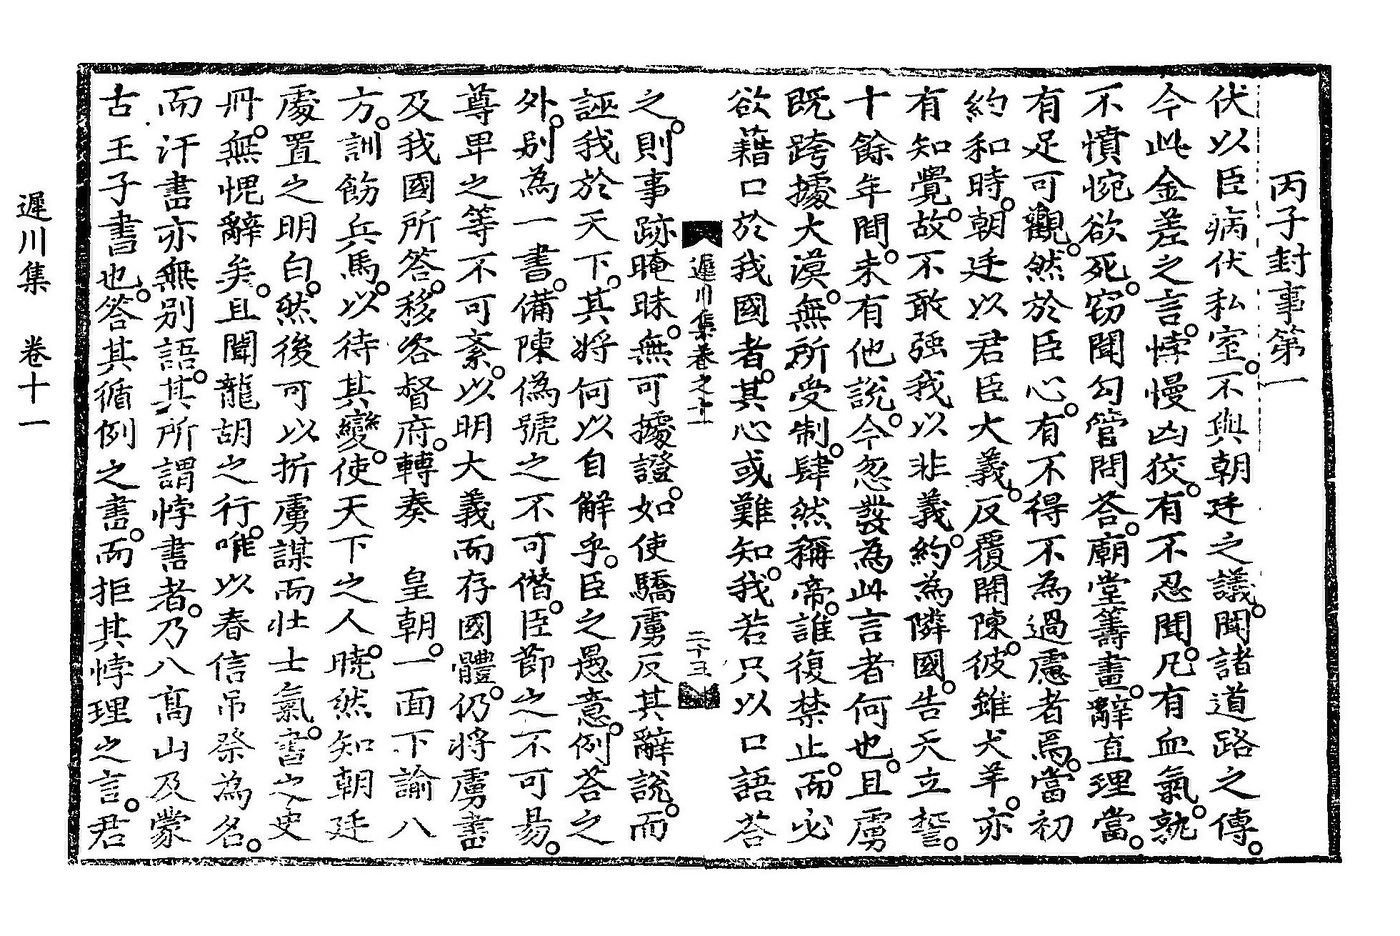 丙子封事第一
伏以臣病伏私室。不與朝廷之議。聞諸道路之傳。
今此金差之言。悖慢凶狡。有不忍聞。凡有血氣。孰
不憤惋欲死。窃聞勾管問答。廟堂籌畫。辭直理當。
有足可觀。然於臣心。有不得不為過慮者焉。當初
約和時。朝廷以君臣大義。反覆開陳。彼雖犬羊。亦
有知覺。故不敢强我以非義。約為隣國。告天立誓。
十餘年間。未有他說。今忽發為此言者何也。且虜
既跨據大漠。無所受制。肆然稱帝。誰復禁止。而必
欲藉口於我國者。其心或難知。我若只以口語答
遲川集卷之十一
二十五
之。則事跡晻昧。無可據證。如使驕虜反其辭說。而
誣我於天下。其將何以自解乎。臣之愚意。例答之
外。別為一書。備陳僞號之不可僭。臣節之不可易。
尊卑之等不可紊。以明大義而存國體。仍將虜書
及我國所答。移咨督府。轉奏　皇朝。一面下諭八
方。訓飭兵馬。以待其變。使天下之人。曉然知朝廷
處置之明白。然後可以折虜謀而壯士氣。書之史
冊。無愧辭矣。且聞龍胡之行。唯以春信吊祭為名。
而汗書亦無別語。其所謂悖書者。乃八高山及蒙
古王子書也。答其循例之書。而拒其悖理之言。君
遲川集　卷十一